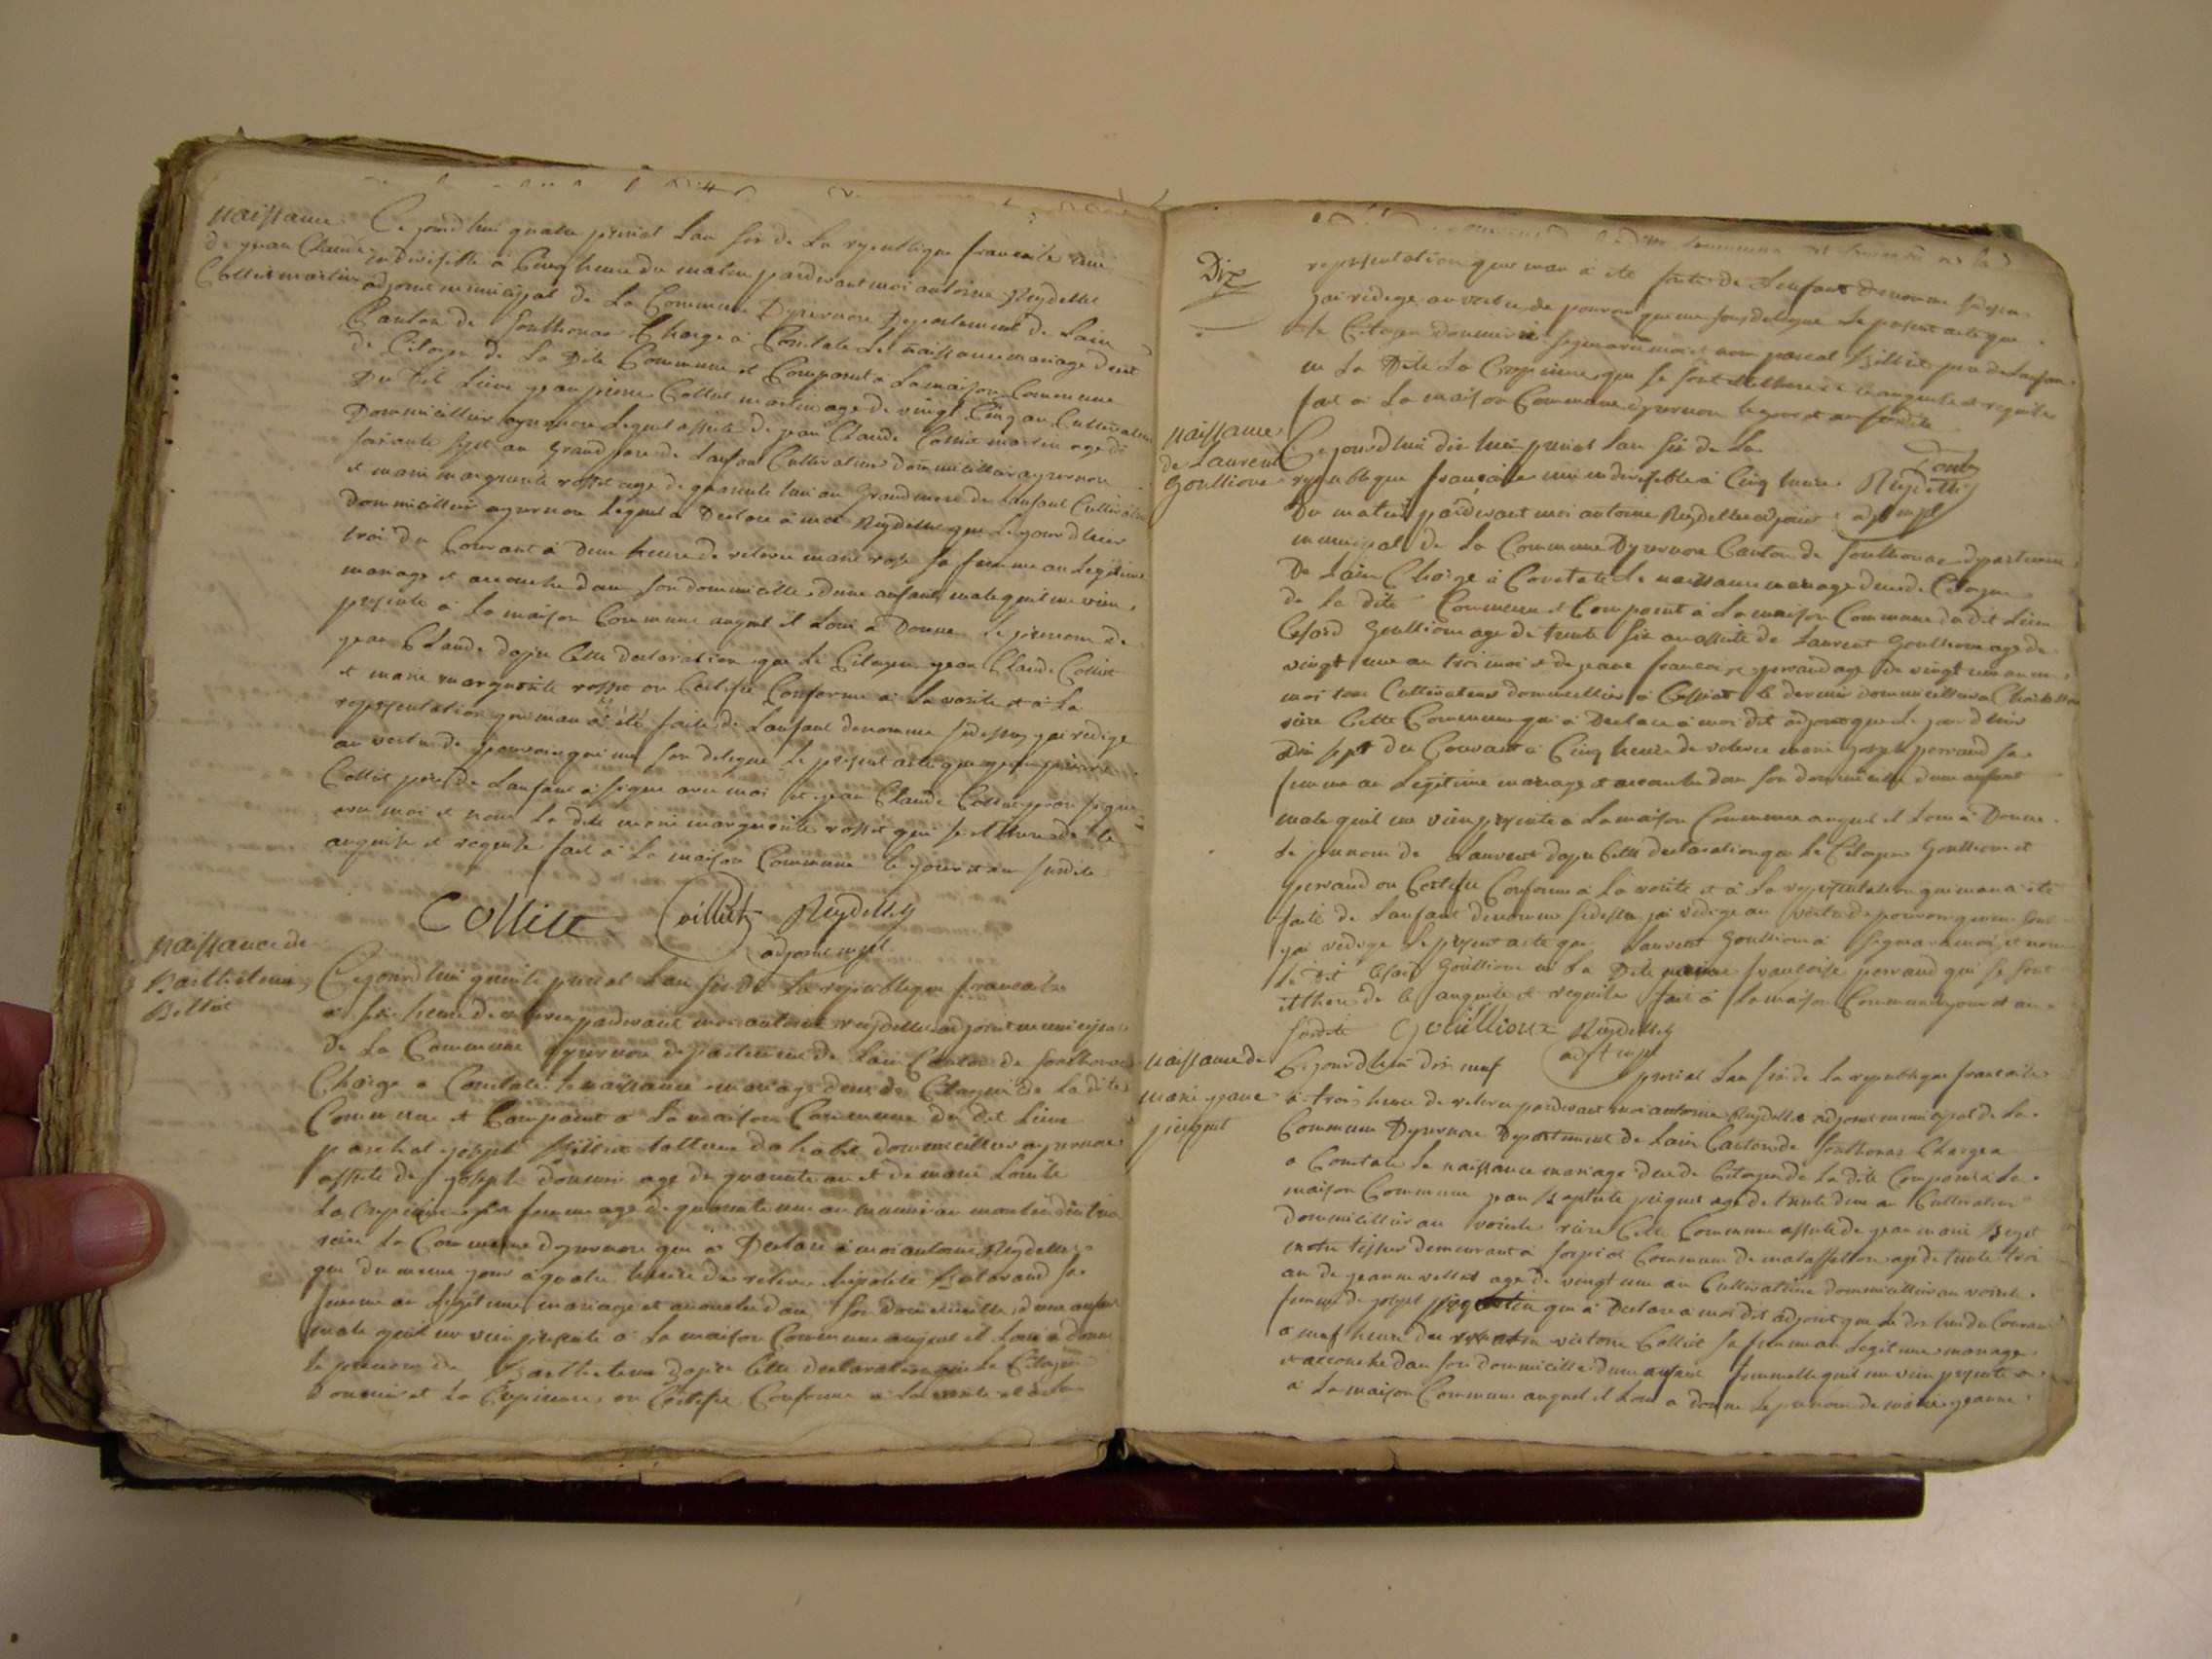 naissance
de jean Claude
Collet martin
Ce jourdhui quatre prerial lan six de la republique francaise une
indivisible a cinq heure du matin pardevant moi antoine Reydellet
adjoint municipal de la Commune Dyzernore Departement de Lain
Canton de Sonthonas Charge a Constate le naissance mariage deces
de Citoyen de La Dite Commune et Comparut a Lamaison Commune
Du Dit Lieu jean pierre Collet martin age de vingt Cinq an Cultivateur
Dommicillier Lequel assiste de jean Claude Collet martin age de
soixante sept an Grand pere de Lanfant Cultivateur dommicillier
et marie marguerite rosset age de quarente huit an Grand mere de Lanfant
dommicillier Lequel a Declare a moi Reydellet que Le jourdhier
troi du Courant a Deux heure de releve marie rose sa femme an Legitime
mariage et accouche dans son dommicille dune anfant male quil me vien
presente a la maison Commune auquel il Lon a Donne Le prenom de
jean Claude dapre Cette declaration que Le Citoyen jean Claude Collet
et marie marguerite rosset on Certifie Conforme a La verite et a La
representation qui man a été faite de Lanfant denomme sidessus jai redige
au vertu de pouvoir qui me son delegue Le present acte que jean pierre
Collet pere de Lanfant a signe avec moi et jean Claude Collet
avec moi et non La dite marie marguerite rosset qui
anquise et requise fait a la maison Commune le jour et an susdite
Collet Coillietz Reydellet
adjoint mpl
naissance de
Barthelemi
Billiet
Cejourdhui quinze prerial Lan six de La republique francaise
a six heure de releve pardevant moi antoine reydellet adjoint municipal
de La Commune departement de Lain Canton de Sonthonas
Charge a Constate le naissance mariage deces de Citoyen de La dite
Commune et Comparut a La maison Commune du dit Lieu
paschal joseph Billiet tallieur dabit dommicillier
assiste de joseph age de quarante an et de marie
La Crepiniere sa femme age de quarente une an
La Commune que a Declare a moi antoine Reydellet
que du meme jour a quatre heure de releve sa
femme an Legitime mariage et accouche dan son dommicille dune anfant
male quil me vien presente a La maison Commune auquel il Lon a donne
Le prenom de Barthelemi dapre Cette declaration que Le Citoyen
et La Crepiniere on Certifie Conforme a La verite et a La
Dix
representation que man a ete faite de Lenfant denomme sidessu
jai redige au vertu de pouvoir que me son delegue Le present acte que
le Citoyen a signe avec moi et non pascal Billiet pere de Lanfan
ni La Dite La Crepiniere que se sont de ce anquise et requise
fait a La maison Commune le jour et an susdite
Reydellet
adj mpl
naissance
de Laurent
Goullione
Cejourdhui dix huit prerial Lan six de La
republique francaise une indivisible a Cinq heure
du matin pardevant moi antoine Reydellet adjoint
municipal de La Commune Dyzernore Canton de Sonthonas departement
De Lain Charge a Constate Le naissance mariage deces de Citoyen
de La Dite Commune et Comparut a La maison Commune du dit Lieu
Goullione age de trente six an assiste de Laurent Goullione age de
vingt une an troi moi et de jeane francoise perraud age de vingt une an
moi tous Cultivateur dommicillier a Cessiat le dernier dommicillier a
rière Cette Commune qui a Declare a moi dit adjoint que Le jour dhier
dix sept du Courant a Cinq heure de releve marie joseph perraud sa
femme an Legitime mariage et accouche dan son dommicille dune anfant
male quil me vien presente a La maison Commune auquel il Lon a Donne
Le prenom de Laurent dapre Cette declaration que Le Citoyen Goullione et
perraud on Certifie Conforme a La verite et a La representation qui man a ete
faite de Lanfant denomme sidessu jai redige au vertu de pouvoir que me son
jai redige Le present acte que Laurent Goullione a signe avec moi et non
Le Dit Goullione ni La Dite francoise perraud qui se sont
de le anquise et requise fait a La maison Commune jour et an
susdite Gouillioux Reydellet
adjt mpl
naissance de
marie jeane
piequet
Cejourdhui dix neuf prerial Lan six de la republique francaise
a trois heure de releve pardevant moi antoine Reydellet adjoint municipal de La
Commune Dyzernore Departement de Lain Canton de Sonthonas Charge a
a Constate Le naissance mariage deces de Citoyen de La dite Comparut a La
maison Commune jean Baptiste piequet age de trente deux an Cultivateur
dommicillier au voirle rière Cette Commune assiste de jean marie
tisseur demeurant a Commune de age de trente troi
an de jeanne age de vingt une an Cultivatrice dommicillier au voirle
femme de joseph que a Declare a moi dit adjoint que Le dix huit du Courant
a neuf heure du matin victoire Collet sa femme an Legitime mariage
et accouche dan son dommicille dune anfant femmelle quil me vien presente
a La maison Commune auquel il Lon a donne Le prenom de marie jeanne